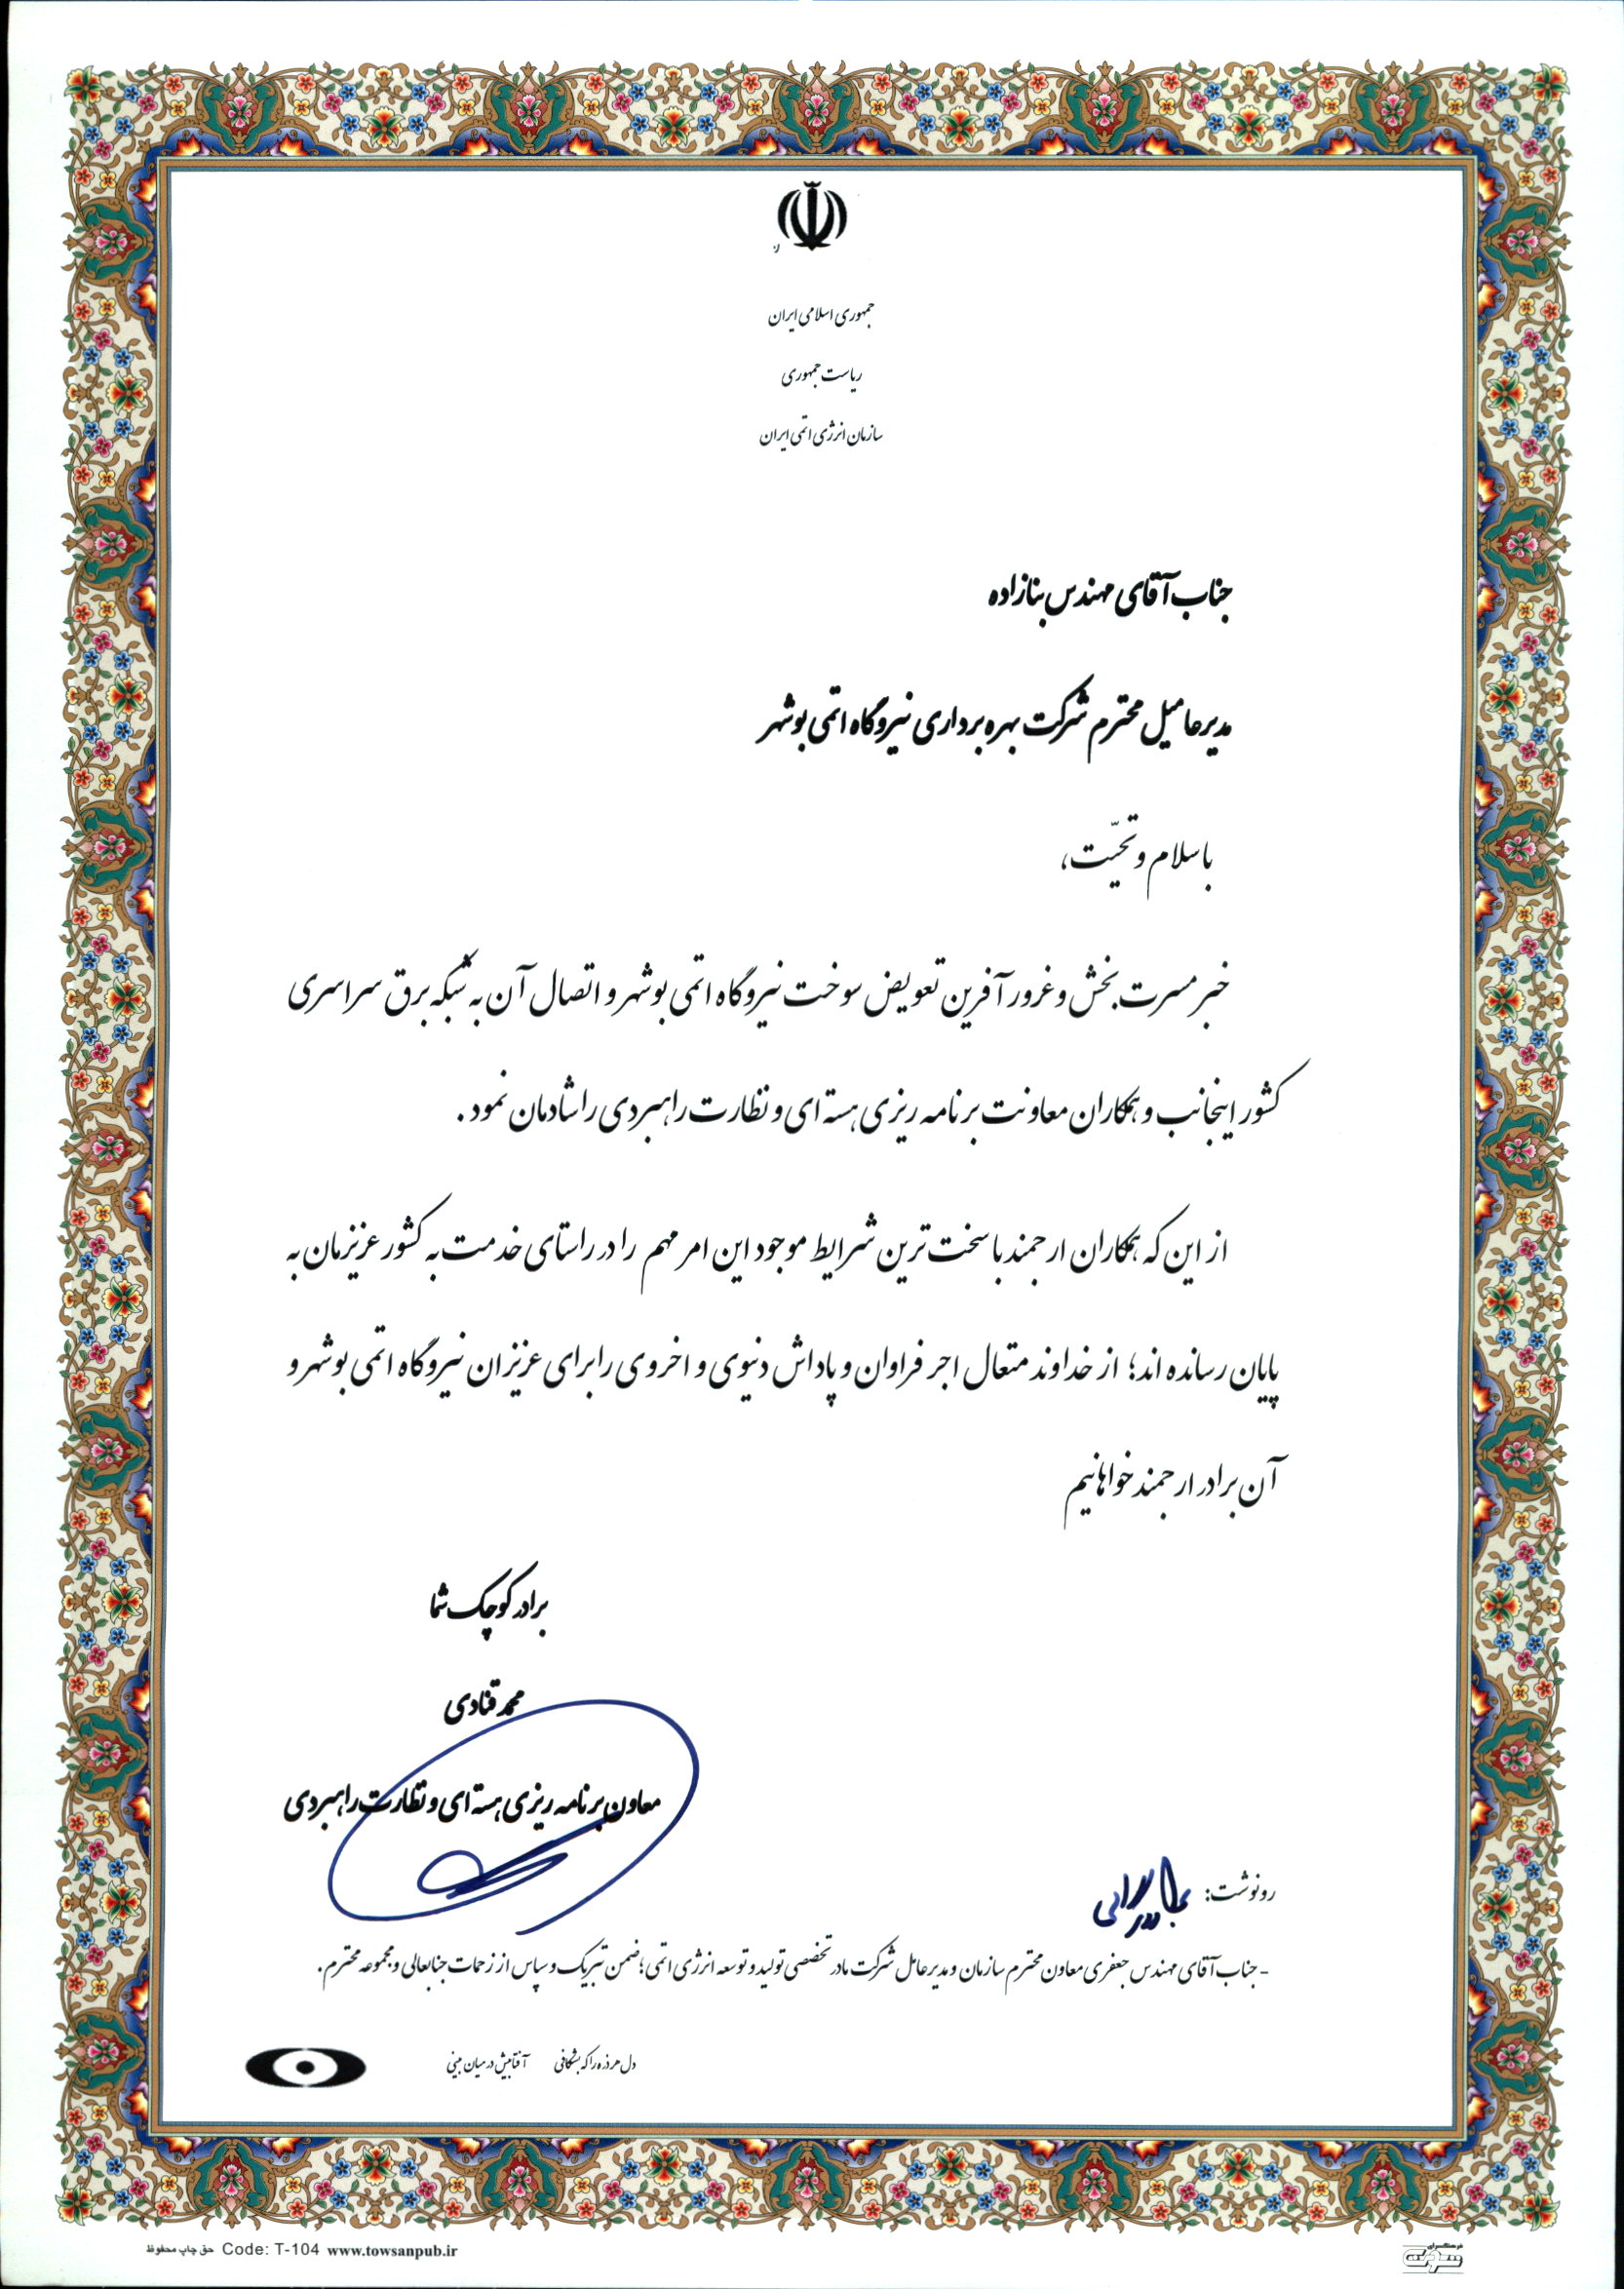 جمهوری اسلامی ایران
ریاست جمهوری
سازمان انرژی اتمی ایران
جناب آقای مهندس بنازاده
مدیرعامل محترم شرکت بهره برداری نیروگاه اتمی بوشهر
با سلام و تحیّت،
خبر مسرت بخش و غرور آفرین تعویض سوخت نیروگاه اتمی بوشهر و اتصال آن به شبکه برق سراسری
کشور اینجانب و همکاران معاونت برنامه ریزی هسته ای و نظارت راهبردی را شادمان نمود.
از این که همکاران ارجمند با سخت ترین شرایط موجود این امر مهم را در راستای خدمت به کشور عزیزمان به
پایان رسانده اند؛ از خداوند متعال اجر فراوان و پاداش دنیوی و اخروی را برای عزیزان نیروگاه اتمی بوشهر و
آن برادر ارجمند خواهانیم
برادر کوچک شما
محمد قنادی
معاون برنامه ریزی هسته ای و نظارت راهبردی
رونوشت:
- جناب آقای مهندس جعفری معاون محترم سازمان و مدیرعامل شرکت مادر تخصصی تولید و توسعه انرژی اتمی؛ ضمن تبریک و سپاس از زحمات جنابعالی و مجموعه محترم.
دل هر ذره را که بشکافی آفتابیش در میان بینی
حق چاپ محفوظ Code: T-104 www.towsanpub.ir